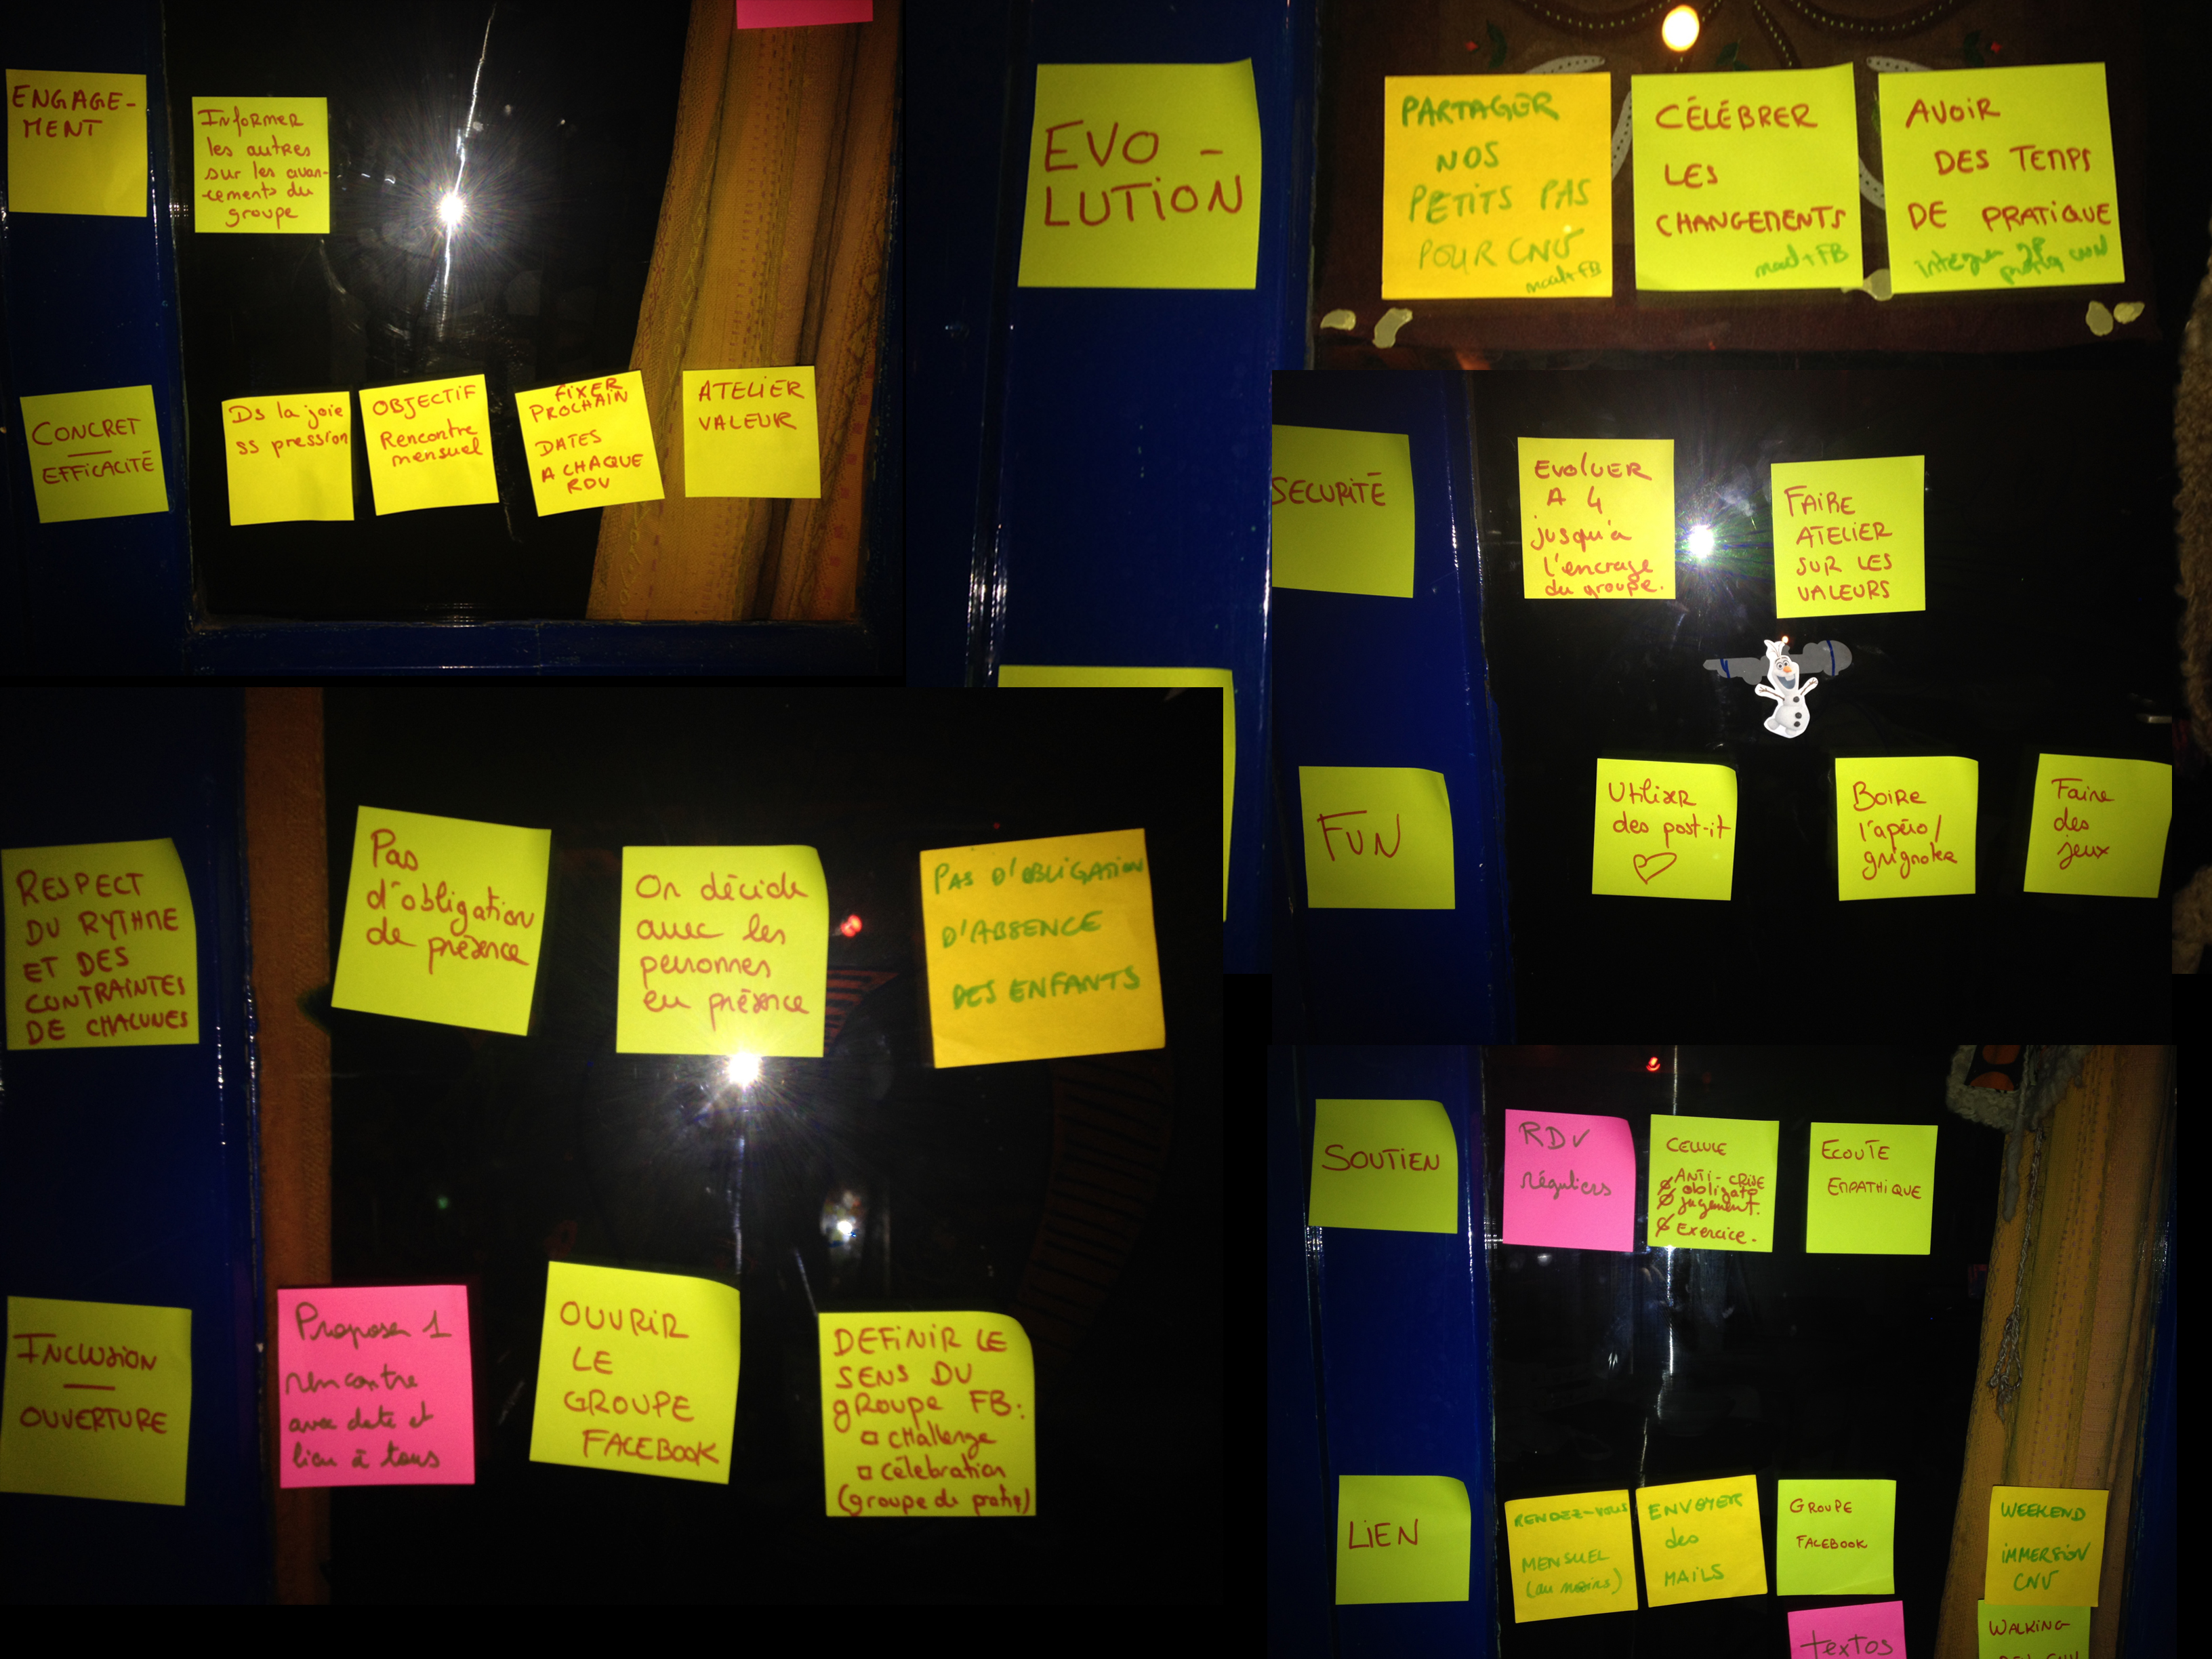 ENGAGE-
MENT
Informer
les autres
sur les avan-
-cements du
groupe
CONCRET
EFFICACITÉ
Ds la joie
ss pression
OBJECTIF
Rencontre
mensuel
FIXER
PROCHAIN
DATES
A CHAQUE
RDV
ATELIER
VALEUR
EVO-
LUTION
PARTAGER
NOS
PETITS PAS
POUR CNV
mail + FB
CÉLÉBRER
LES
CHANGEMENTS
mail + FB
AVOIR
DES TEMPS
DE PRATIQUE
SECURITÉ
EVOLUER
A 4
jusqu'à
l'encrage
du groupe.
FAIRE
ATELIER
SUR LES
VALEURS
FUN
Utiliser
des post-it
Boire
l'apéro/
grignoter
Faire
des
jeux
RESPECT
DU RYTHME
ET DES
CONTRAINTES
DE CHACUNES
Pas
d'obligation
de présence
On décide
avec les
personnes
en présence
PAS D'OBLIGATION
D'ABSENCE
DES ENFANTS
INCLUSION
OUVERTURE
Proposer 1
rencontre
avec date et
lieu à tous
OUVRIR
LE
GROUPE
FACEBOOK
DEFINIR LE
SENS DU
gROUPE FB:
challenge
célebration
(groupe de pratiq)
SOUTIEN
RDV
réguliers
CELLULE
ANTI-CRISE
obligato
jugement.
Exercice.
ECOUTE
EMPATHIQUE
LIEN
RENDEZ-VOUS
MENSUEL
(au moins)
ENVOYER
des
MAILS
GROUPE
FACEBOOK
textos
WEEKEND
IMMERSION
CNV
WALKING